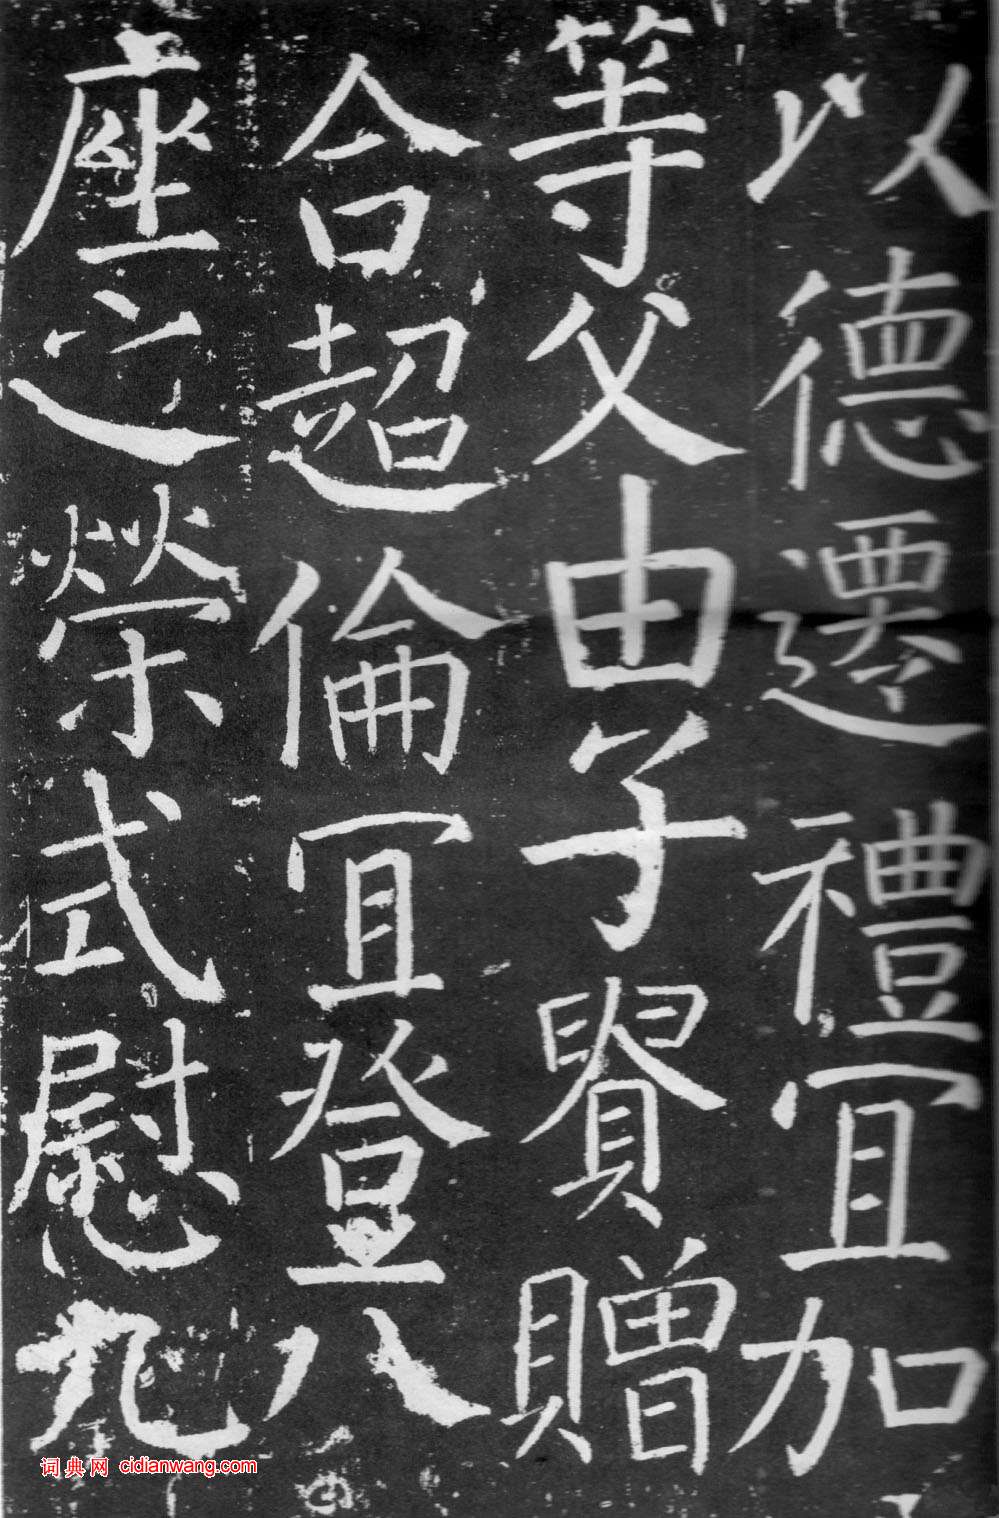 以德遷禮冝加
等父由子貴贈
合超倫冝登八
座之榮式慰九
词典网 cidianwang.com